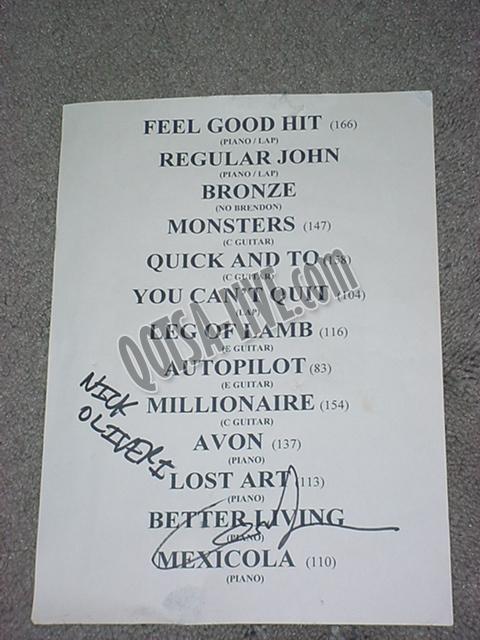 FEEL GOOD HIT (166)
(PIANO / LAP)
REGULAR JOHN
(PIANO / LAP)
BRONZE
(NO BRENDON)
MONSTERS (147)
(C GUITAR)
QUICK AND TO (158)
(C GUITAR)
YOU CAN'T QUIT (104)
(LAP)
LEG OF LAMB (116)
(E GUITAR)
AUTOPILOT (83)
(E GUITAR)
MILLIONAIRE (154)
(C GUITAR)
AVON (137)
(PIANO)
LOST ART (113)
(PIANO)
BETTER LIVING
(PIANO)
MEXICOLA (110)
(PIANO)
NICK
OLIVERI
QOTSA-LIVE.com